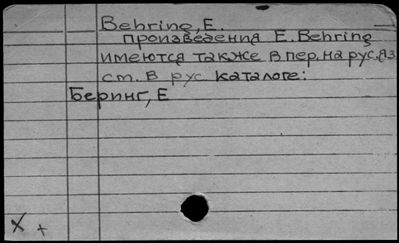 Behring, E.
произведения E. Behring
имеются также в пер. на рус. яз
см. в рус каталоге:
Беринг, Е
X +